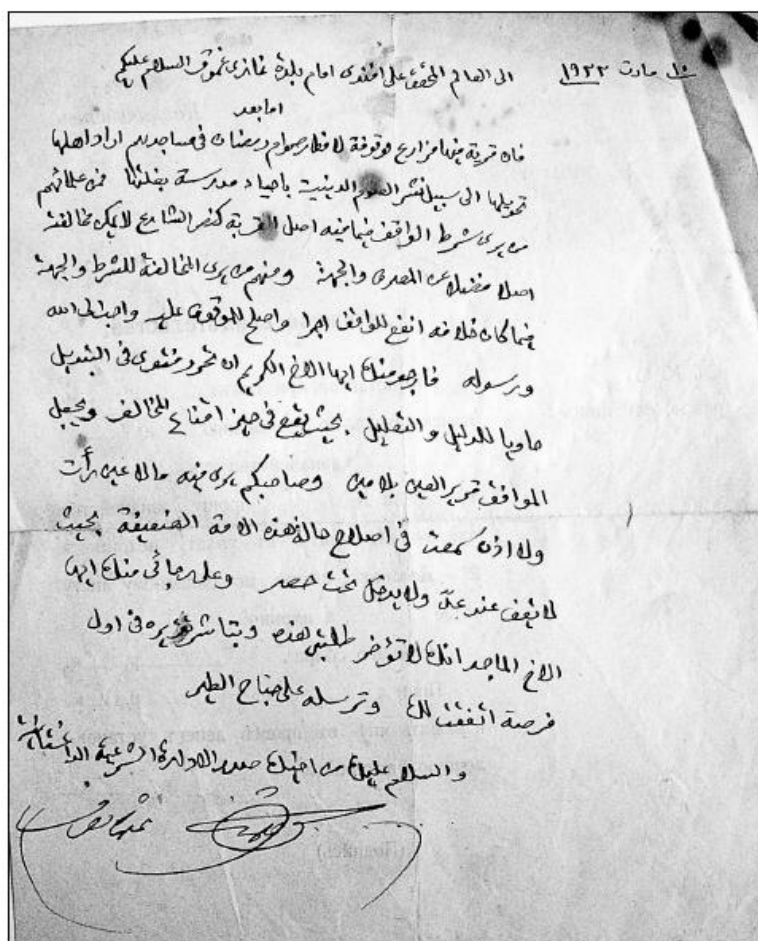 ١٥ مارت ١٩٢٢
الى العالم المحقق على افندى امام بلدة غازى غموق السلام عليكم
اما بعد
فان قرية فيها مزارع موقوفة لافطار صوام رمضان فى مساجدهم اراد اهلها
تحويلها الى سبيل نشر العلوم الدينية باحياء مدرسة بغلتها فمن علمائهم
من يرى شرط الواقف فيما فيه اصل القربة كنص الشارع لا يمكن مخالفته
اصلا فضلا عن المصرف والجهة ومنهم من يرى المخالفة للشرط والجهة
فيما كان خلافه انفع للواقف اجرا واصلح للموقوف عليه واحب الى الله
ورسوله فارجو منك ايها الاخ الكريم ان تحرر فتوى فى التبديل
حاويا للدليل والتعليل بحيث يقع فى حيز اقناع المخالف ويجعل
الموافق قرير العين بلا مين وصاحبكم يرى فيه ما لا عين رأت
ولا اذن سمعت فى اصلاح حال هذه الامة الضعيفة بحيث
لا يقف عند حد ولا يدخل تحت حصر وعلى رجائى منك ايها
الاخ الماجد انك لا تؤخر طلبتى هذه وتباشر تحريره فى اول
فرصة اتفقت لك وترسله على جناح الطير
والسلام عليك من اخيك صدر الادارة الشرعية الداغستانية